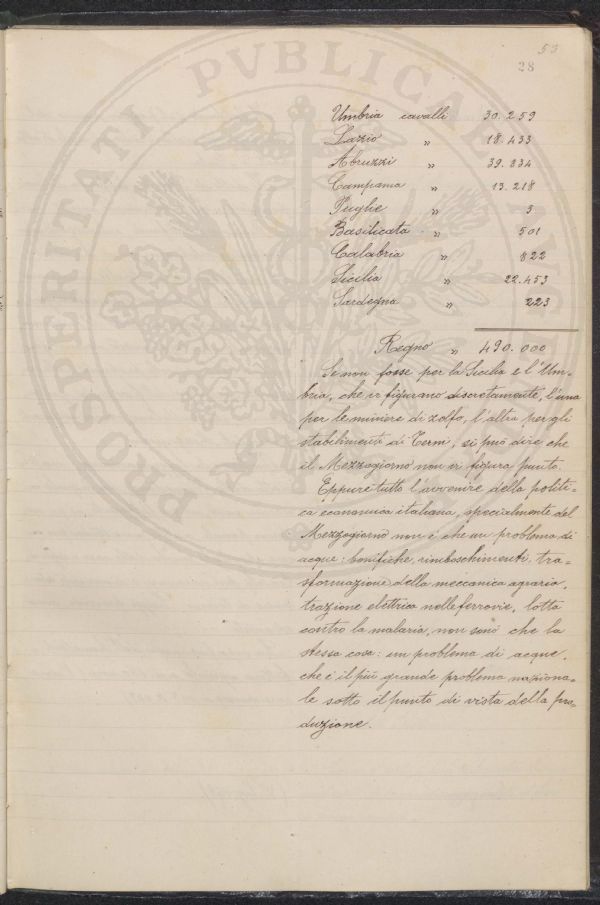 53
28
Umbria cavalli 30.259
Lazio " 18.433
Abruzzi " 39.834
Campania " 13.218
Puglie " 3
Basilicata " 501
Calabria " 822
Sicilia " 22.453
Sardegna " 223
Regno " 490.000
Se non fosse per la Sicilia e l'Um-
bria, che vi figurano discretamente, l'una
per le miniere di zolfo, l'altra per gli
stabilimenti di Terni, si può dire che
il Mezzogiorno non vi figura punto.
Eppure tutto l'avvenire della politi=
ca economica italiana, specialmente del
Mezzogiorno non è che un problema di
acque: bonifiche, rimboschimenti, tra=
sformazione della meccanica agraria,
trazione elettrica nelle ferrovie, lotta
contro la malaria, non sono che la
stessa cosa: un problema di acque,
che è il più grande problema naziona=
le sotto il punto di vista della pro=
duzione.
PROSPERITATI PVBLICAE